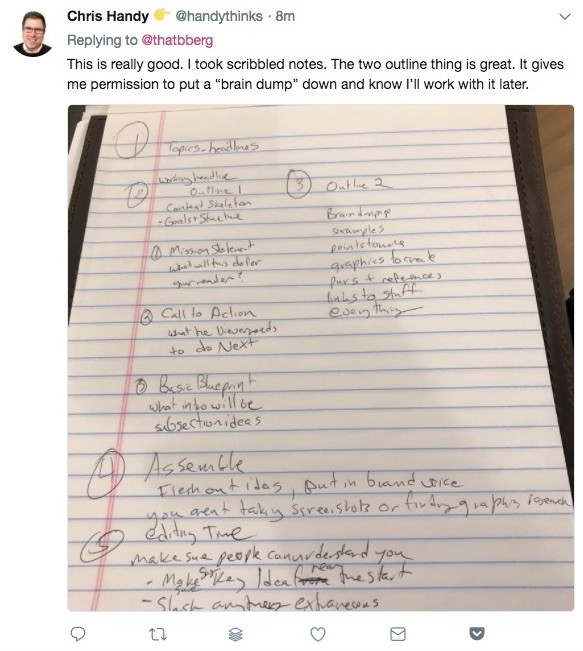 Chris Handy 👉 @handythinks · 8m
Replying to @thatbberg
This is really good. I took scribbled notes. The two outline thing is great. It gives
me permission to put a “brain dump” down and know I’ll work with it later.
1 Topics - headlines
2 working headline
Outline 1
Content Skeleton
- Goals + Structure
1 Mission Statement
what will this do for
your reader?
2 Call to Action
what he needs
to do Next
3 Basic Blueprint
what info will be
subsection ideas
3 Outline 2
Braindump
examples
points to make
graphics to create
puns + references
links to stuff
everything
4 Assemble
Flesh out ideas, put in brand voice
you arent taking screenshots or finding graphics research
5 editing Time
make sure people can understand you
- Make sure Key Idea near the start
- Slash anything extraneous